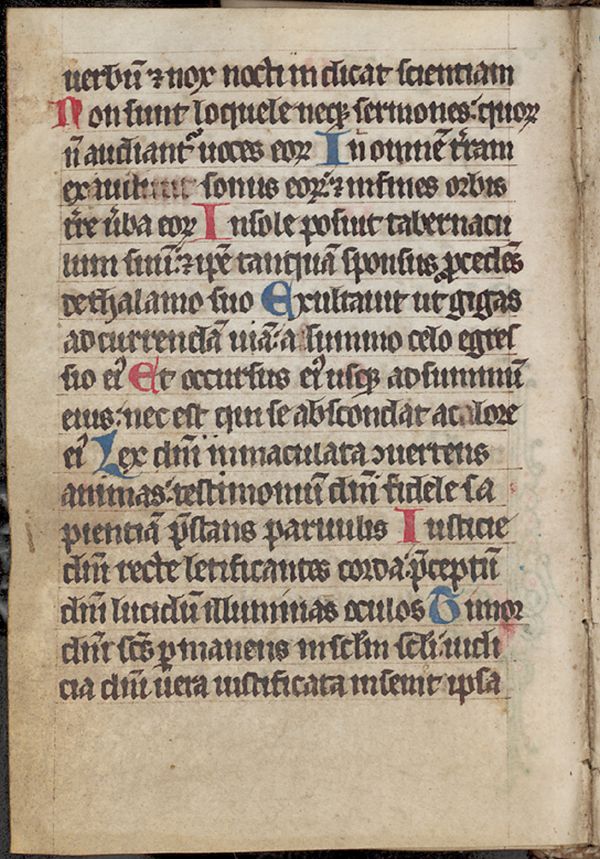 uerbū ⁊ nox nocti indicat scientiam
Non sunt loquele neqꝫ sermones: quoꝝ
n̄ audiantᷣ uoces eoꝝ In omnē tr̄am
exauiuit sonus eoꝝ: ⁊ in fines orbis
tr̄e ūba eoꝝ In sole posuit tabernacu
lum suū: ⁊ ip̄e tanquā sponsus ꝓcedēs
de thalamo suo Exultauit ut gigas
ad currendā uiā: a summo celo egres
sio eiꝰ Et occursus eiꝰ usqꝫ ad summū
eius: nec est qui se abscondat a calore
eiꝰ Lex dn̄i inmaculata ↄuertens
animas: testimoniū dn̄i fidele sa
pientiā p̄stans paruulis Iusticie
dn̄i recte letificantes corda: p̄ceptū
dn̄i lucidū illuminas oculos Timor
dn̄i sc̄s ꝑmanens in sc̄lm sc̄li: iudi
cia dn̄i uera iustificata in semt ipsa